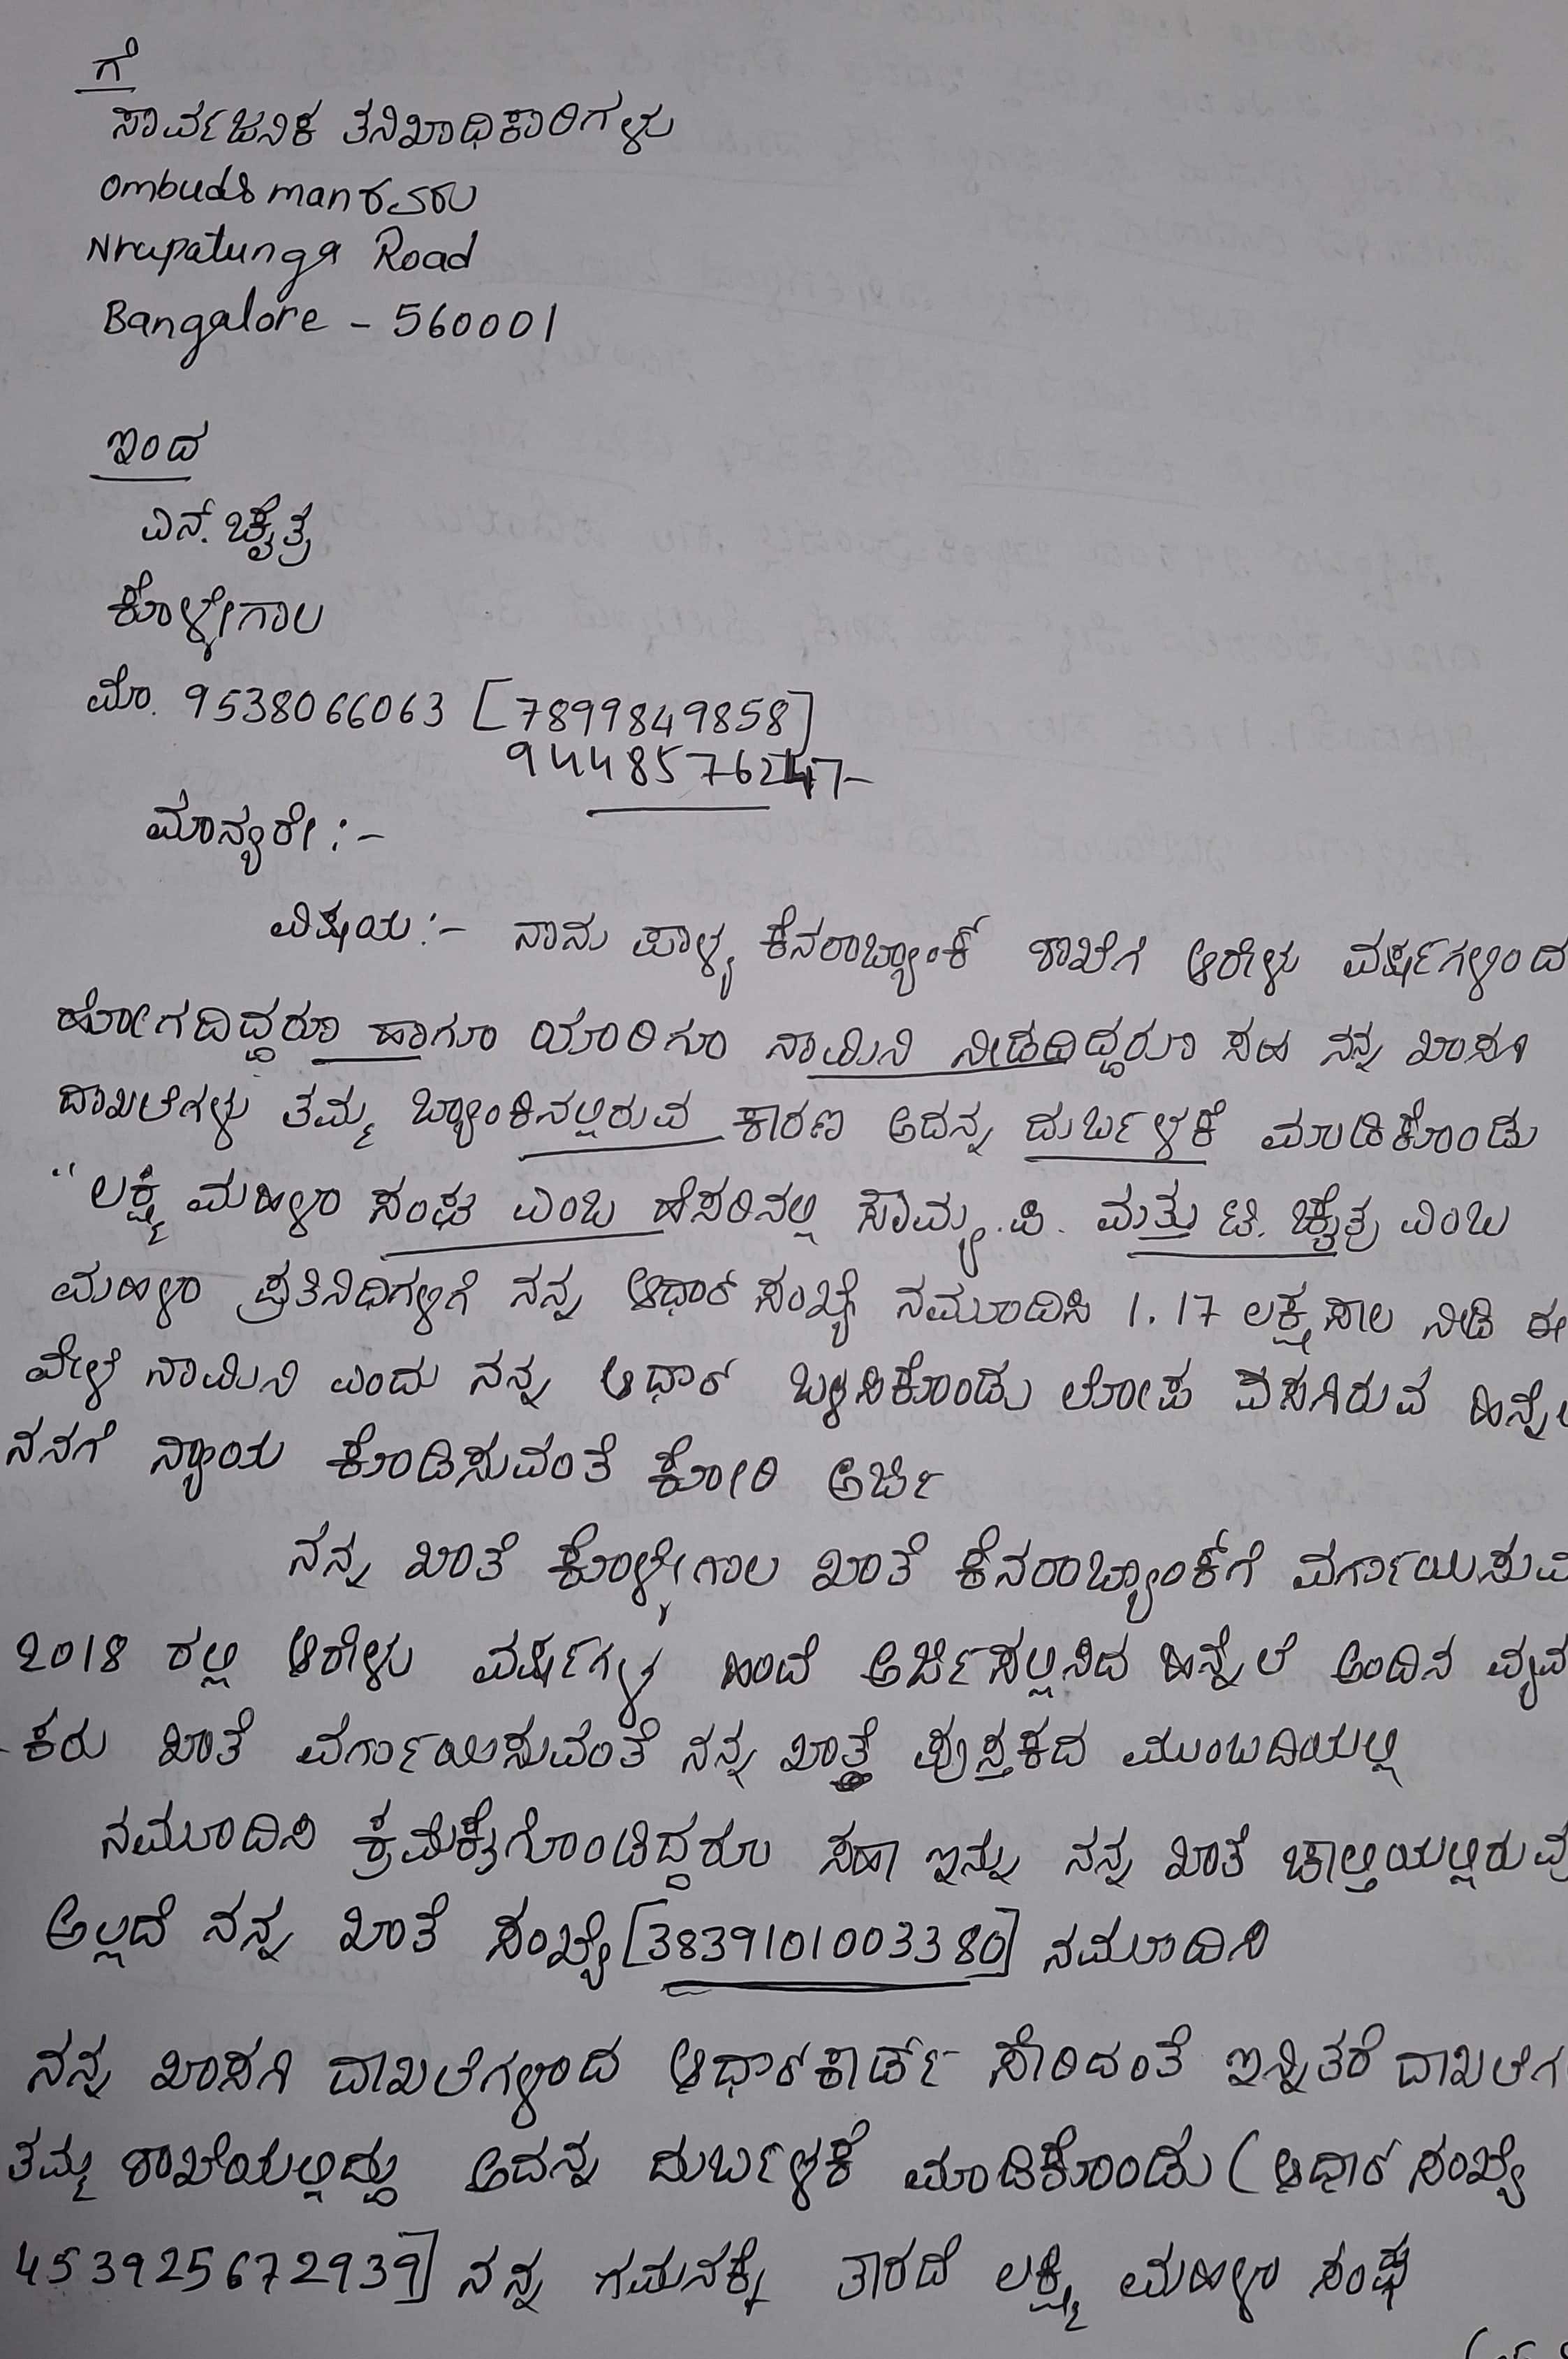 ಗೆ
ಸಾರ್ವಜನಿಕ ತನಿಖಾಧಿಕಾರಿಗಳು
Ombudsman ರವರು
Nrupatunga Road
Bangalore - 560001
ಇಂದ
ಎನ್. ಚೈತ್ರ
ಕೊಳ್ಳೇಗಾಲ
ಮೊ. 9538066063 [7899849858]
ಮಾನ್ಯರೇ :-
ವಿಷಯ :- ನಾನು ಪಾಳ್ಯ ಕೆನರಾಬ್ಯಾಂಕ್ ಶಾಖೆಗೆ ಆರೇಳು ವರ್ಷಗಳಿಂದ
ಹೋಗದಿದ್ದರೂ ಹಾಗೂ ಯಾರಿಗೂ ನಾಮಿನಿ ನೀಡದಿದ್ದರೂ ಸಹ ನನ್ನ ಖಾಸಗಿ
ದಾಖಲೆಗಳು ತಮ್ಮ ಬ್ಯಾಂಕಿನಲ್ಲಿರುವ ಕಾರಣ ಅದನ್ನ ದುರ್ಬಳಕೆ ಮಾಡಿಕೊಂಡು
"ಲಕ್ಷ್ಮಿ ಮಹಿಳಾ ಸಂಘ ಎಂಬ ಹೆಸರಿನಲ್ಲಿ ಸೌಮ್ಯ. ಪಿ. ಮತ್ತು ಟಿ. ಚೈತ್ರ ಎಂಬ
ಮಹಿಳಾ ಪ್ರತಿನಿಧಿಗಳಿಗೆ ನನ್ನ ಆಧಾರ್ ಸಂಖ್ಯೆ ನಮೂದಿಸಿ 1.17 ಲಕ್ಷ ಸಾಲ ನೀಡಿ ಈ
ವೇಳೆ ನಾಮಿನಿ ಎಂದು ನನ್ನ ಆಧಾರ್ ಬಳಸಿಕೊಂಡು ಲೋಪ ವೆಸಗಿರುವ
ನನಗೆ ನ್ಯಾಯ ಕೊಡಿಸುವಂತೆ ಕೋರಿ ಅರ್ಜಿ
ನನ್ನ ಖಾತೆ ಕೊಳ್ಳೇಗಾಲ ಖಾತೆ ಕೆನರಾಬ್ಯಾಂಕ್‌ಗೆ
2018 ರಲ್ಲಿ ಆರೇಳು ವರ್ಷಗಳ ಹಿಂದೆ ಅರ್ಜಿ ಸಲ್ಲಿಸಿದ ಹಿನ್ನೆಲೆ ಅಂದಿನ
ಕರು ಖಾತೆ ವರ್ಗಾಯಿಸುವಂತೆ ನನ್ನ ಖಾತೆ ಪುಸ್ತಕದ ಮುಂಬದಿಯಲ್ಲಿ
ನಮೂದಿಸಿ ಕ್ರಮಕೈಗೊಂಡಿದ್ದರೂ ಸಹಾ ಇನ್ನು ನನ್ನ ಖಾತೆ
ಅಲ್ಲದೆ ನನ್ನ ಖಾತೆ ಸಂಖ್ಯೆ [3839101003380] ನಮೂದಿಸಿ
ನನ್ನ ಖಾಸಗಿ ದಾಖಲೆಗಳಾದ ಆಧಾರಕಾರ್ಡ್ ಸೇರಿದಂತೆ ಇನ್ನಿತರೆ
ತಮ್ಮ ಶಾಖೆಯಲ್ಲಿದ್ದು ಅದನ್ನ ದುರ್ಬಳಕೆ ಮಾಡಿಕೊಂಡು (ಆಧಾರ್ ಸಂಖ್ಯೆ
453925672939] ನನ್ನ ಗಮನಕ್ಕೆ ತಾರದೆ ಲಕ್ಷ್ಮಿ ಮಹಿಳಾ ಸಂಘ